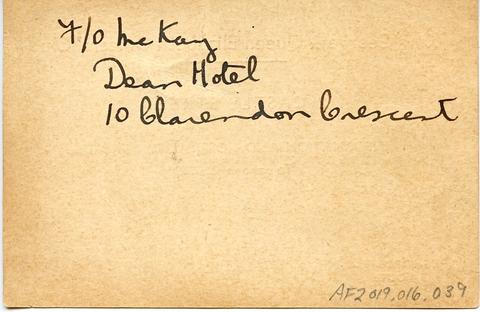 F/O McKay
Dean Hotel
10 Clarendon Crescent
AF2019.016.039